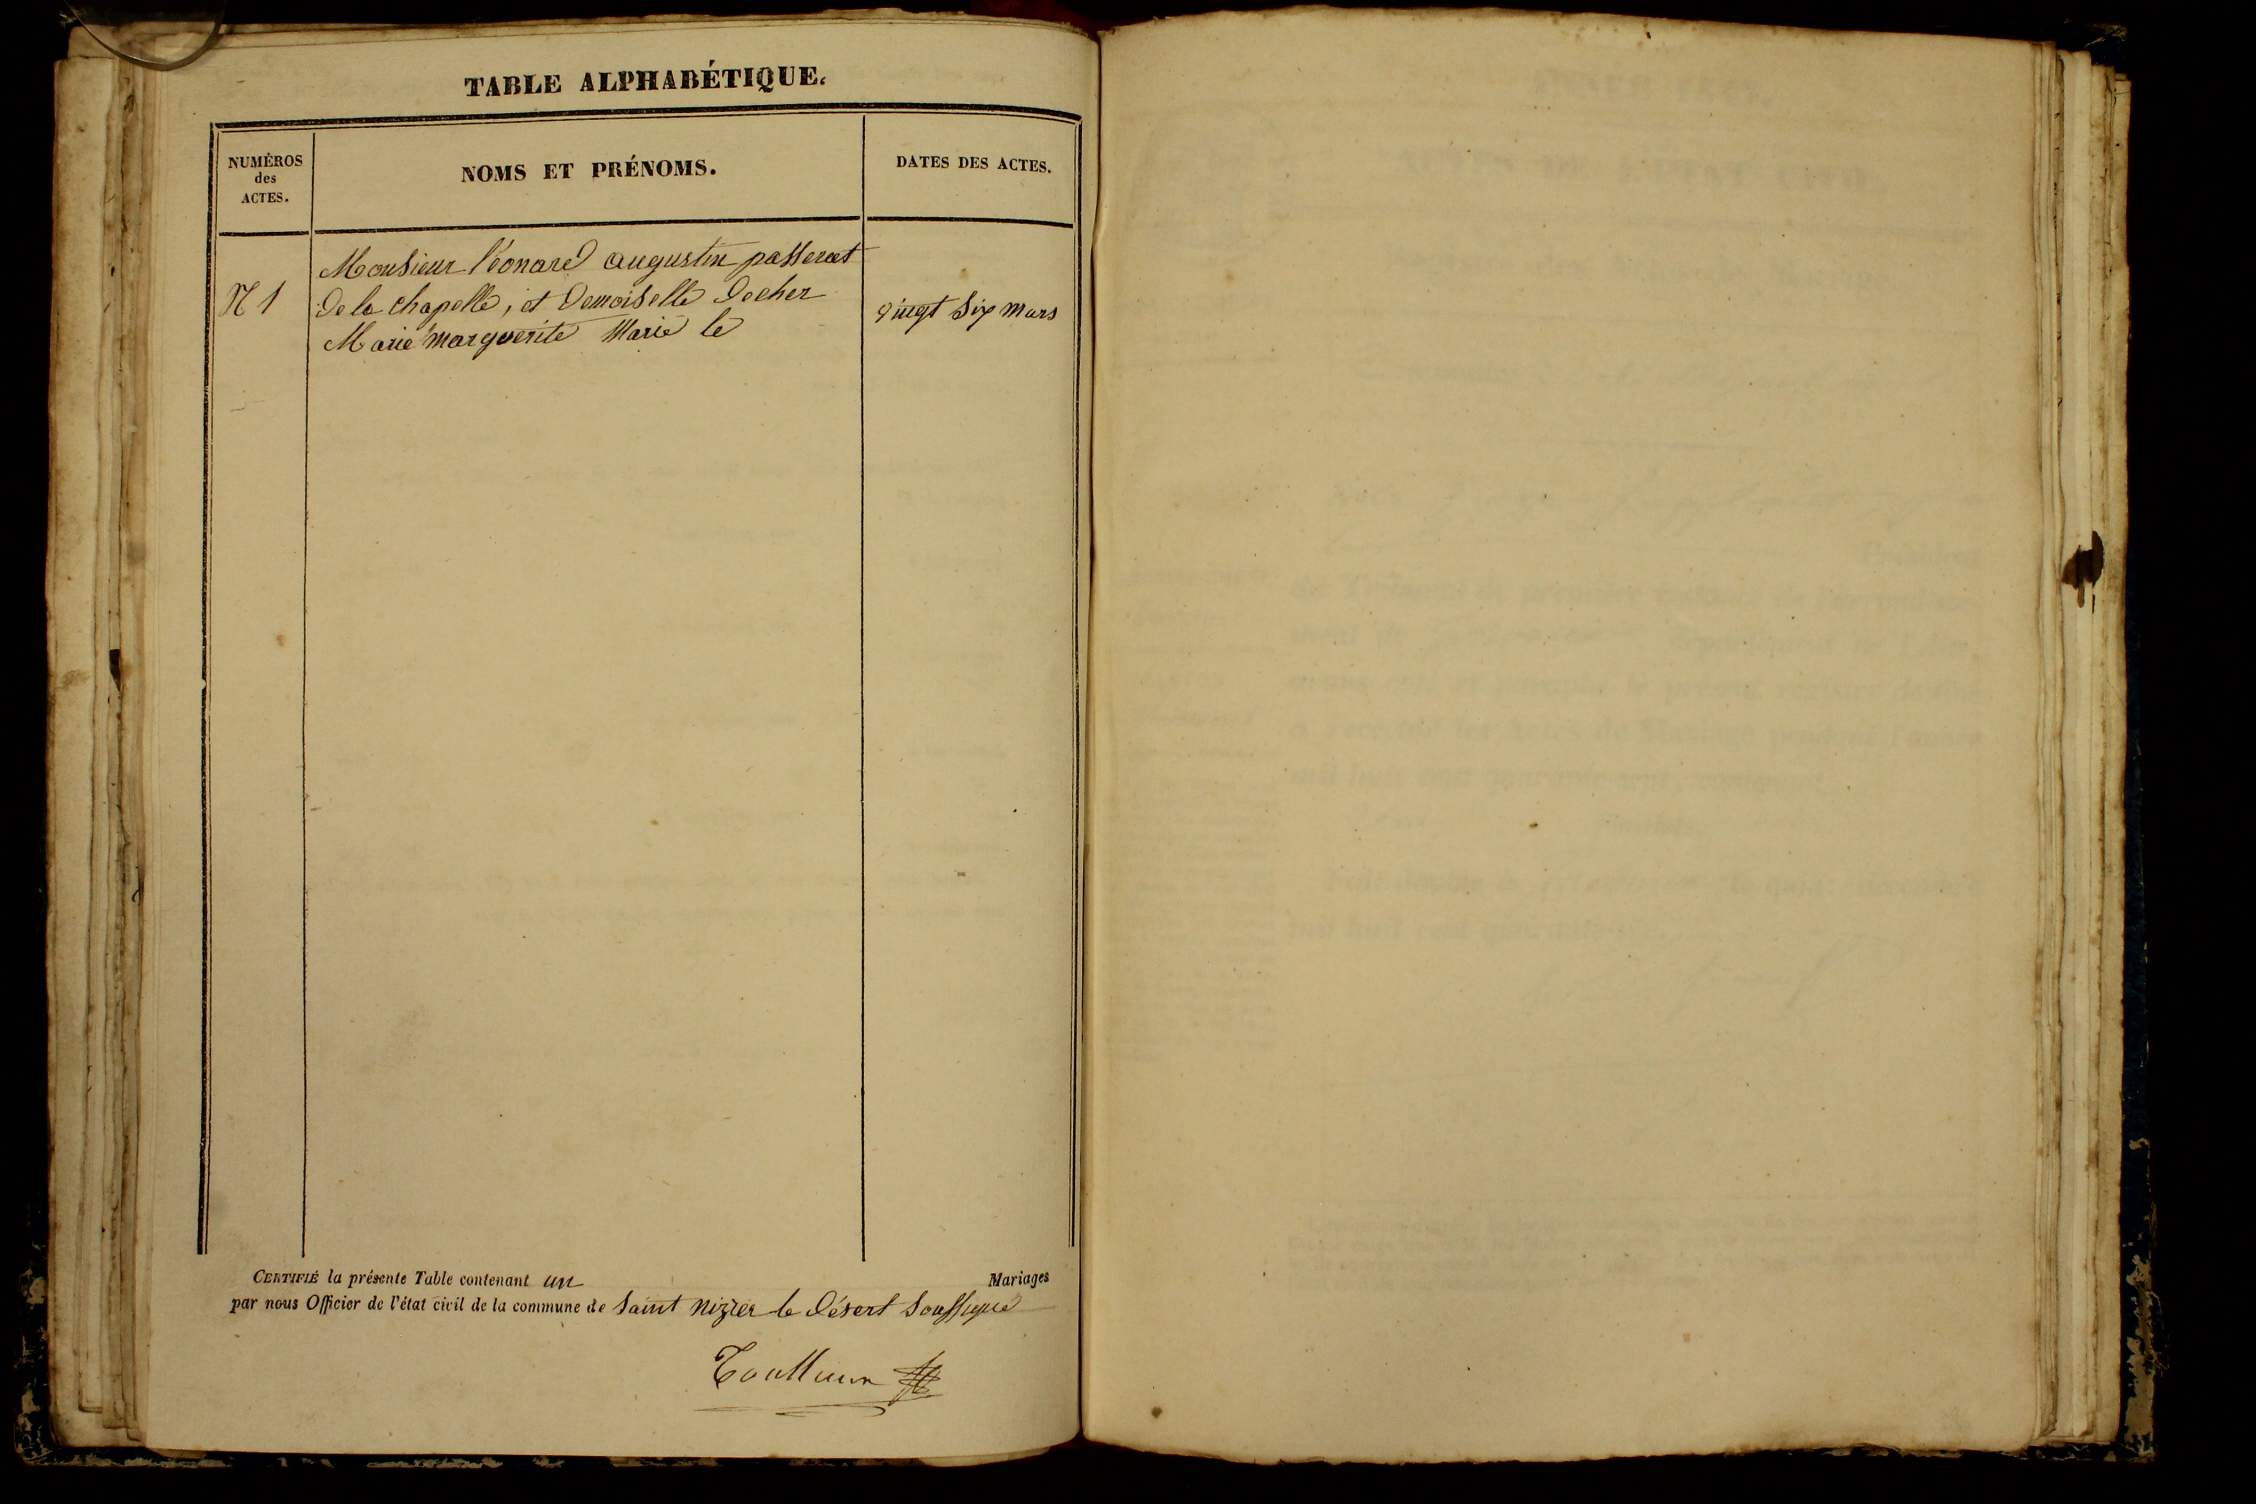 TABLE ALPHABÉTIQUE.
NUMÉROS
des
ACTES.
NOMS ET PRÉNOMS.
DATES DES ACTES.
Monsieur léonard augustin passerat
N 1
de la chapelle, et Demoiselle Decher
vingt six mars
Marie marguerite Marié le
CERTIFIÉ la présente Table contenant un Mariages
par nous Officier de l'état civil de la commune de Saint nizier le Désert Soussigné